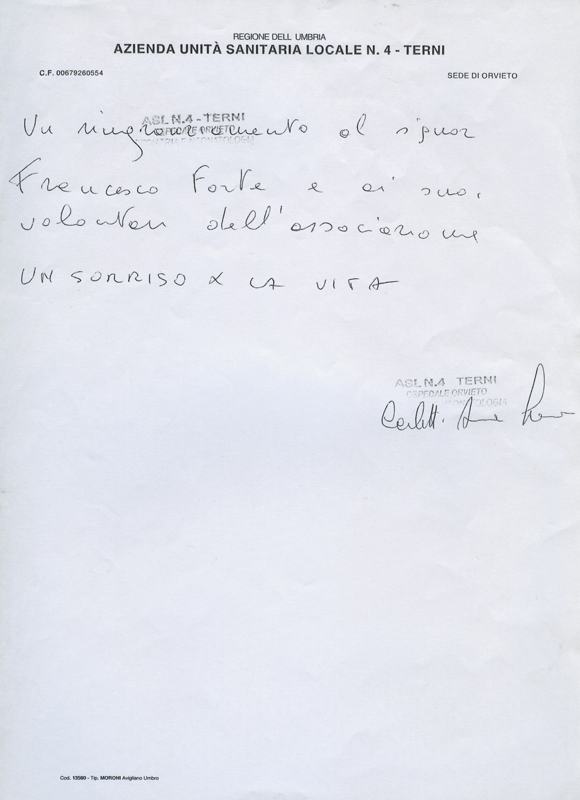 REGIONE DELL UMBRIA
AZIENDA UNITÀ SANITARIA LOCALE N. 4 - TERNI
C.F. 00679260554
SEDE DI ORVIETO
ASL N.4 - TERNI
OSPEDALE ORVIETO
Un ringraziamento al signor
Francesco Forte e ai suoi
volontari dell'associazione
UN SORRISO X LA VITA
ASL N.4 TERNI
OSPEDALE ORVIETO
Cod. 13580 - Tip. MORONI Avigliano Umbro